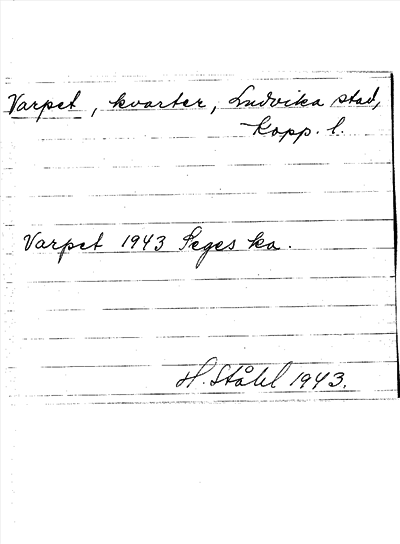 Varpet, kvarter, Ludvika stad,
Kopp. l.
Varpet 1943 Seges ka.
H. Ståhl 1943.